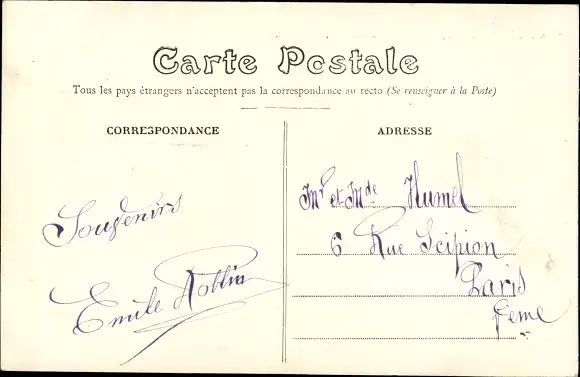 Carte Postale
Tous les pays étrangers n'acceptent pas la correspondance au recto (Se renseigner à la Poste)
CORRESPONDANCE
ADRESSE
Souvenirs
Emile Roblin
Mr et Mde Humel
6 Rue Scipion
Paris
5eme